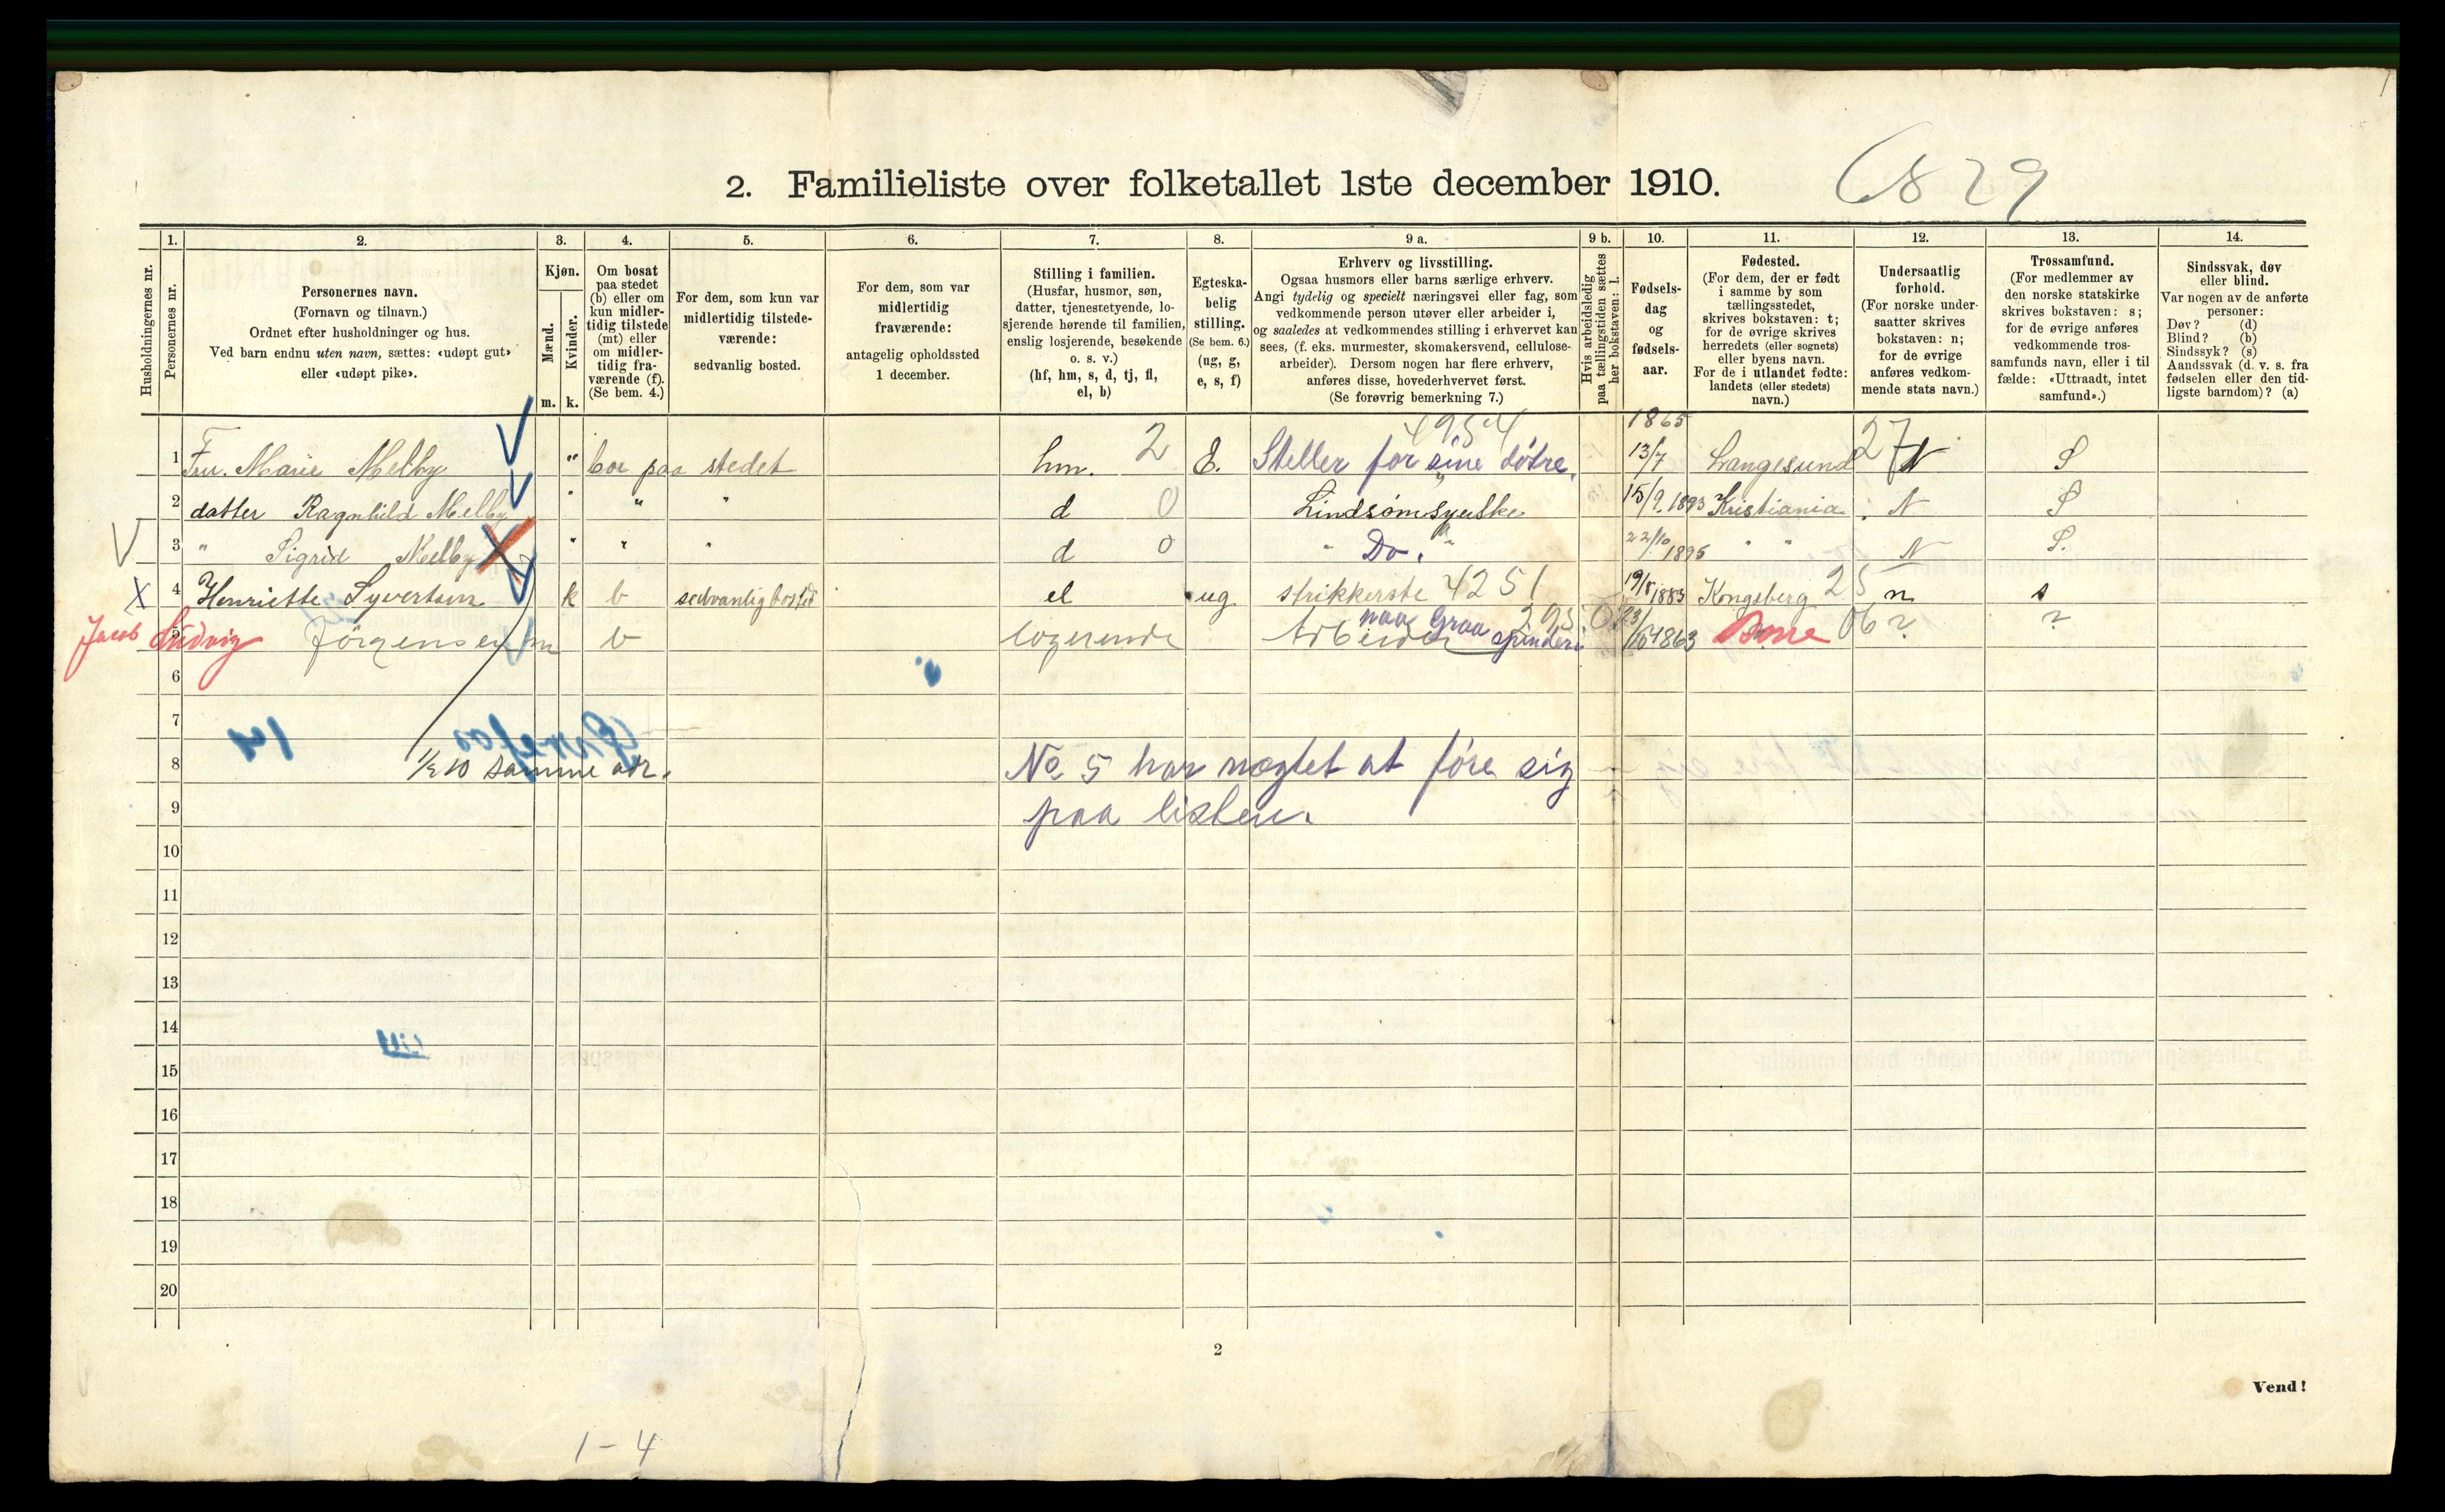 6829
2. Familieliste over folketallet 1ste december 1910.
Husholdningernes nr.
1.
Personernes nr.
2.
Personernes navn.
(Fornavn og tilnavn.)
Ordnet efter husholdninger og hus.
Ved barn endnu uten navn, sættes: «udøpt gut»
eller «udøpt pike».
3.
Kjøn.
Mænd.
Kvinder.
m. k.
4.
Om bosat
paa stedet
(b) eller om
kun midler-
tidig tilstede
(mt) eller
om midler-
tidig fra-
værende (f).
(Se bem. 4.)
5.
For dem, som kun var
midlertidig tilstede-
værende:
sedvanlig bosted.
6.
For dem, som var
midlertidig
fraværende:
antagelig opholdssted
1 december.
7.
Stilling i familien.
(Husfar, husmor, søn,
datter, tjenestetyende, lo-
sjerende hørende til familien,
enslig losjerende, besøkende
o. s. v.)
(hf, hm, s, d, tj, fl,
el, b)
8.
Egteska-
belig
stilling.
(Se bem. 6.)
(ug, g,
e, s, f)
9 a.
Erhverv og livsstilling.
Ogsaa husmors eller barns særlige erhverv.
Angi tydelig og specielt næringsvei eller fag, som
vedkommende person utøver eller arbeider i,
og saaledes at vedkommendes stilling i erhvervet kan
sees, (f. eks. murmester, skomakersvend, cellulose-
arbeider). Dersom nogen har flere erhverv,
anføres disse, hovederhvervet først.
(Se forøvrig bemerkning 7.)
9 b.
Hvis arbeidsledig
paa tællingstiden sættes
her bokstaven: l.
10.
Fødsels-
dag
og
fødsels-
aar.
11.
Fødested.
(For dem, der er født
i samme by som
tællingsstedet,
skrives bokstaven: t;
for de øvrige skrives
herredets (eller sognets)
eller byens navn.
For de i utlandet fødte:
landets (eller stedets)
navn.)
12.
Undersaatlig
forhold.
(For norske under-
saatter skrives
bokstaven: n;
for de øvrige
anføres vedkom-
mende stats navn.)
13.
Trossamfund.
(For medlemmer av
den norske statskirke
skrives bokstaven: s;
for de øvrige anføres
vedkommende tros-
samfunds navn, eller i til
fælde: «Uttraadt, intet
samfund».)
14.
Sindssvak, døv
eller blind.
Var nogen av de anførte
personer:
Døv? (d)
Blind? (b)
Sindssyk? (s)
Aandssvak (d. v. s. fra
fødselen eller den tid-
ligste barndom)? (a)
1 Fru. Marie Melby " bor paa stedet hm. 2 E. 4954 Steller for sine døtre. 1865 13/7 Langesund 27 N S
2 datter Ragnhild Melby " " " d 0 Lindsømsyerske 15/9 1893 Kristiania. N S
3 " Sigrid Melby " " " d 0 " Do. " 22/10 1895 " " N S.
X 4 Henriette Syvertsen k b sedvanlig bosted el ug strikkerske 4251 19/8 1883 Kongsberg 25 n s
Jacob Ludvig 5 Jörgensen m b logerende Arbeider paa Graa spinderi 1863 Borre 06 ? ?
6
7
8 1/2 10 samme adr. No 5 har nægtet at före sig
9 paa listen.
10
11
12
13
14
15
16
17
18
19
20
2
Vend!
1-4